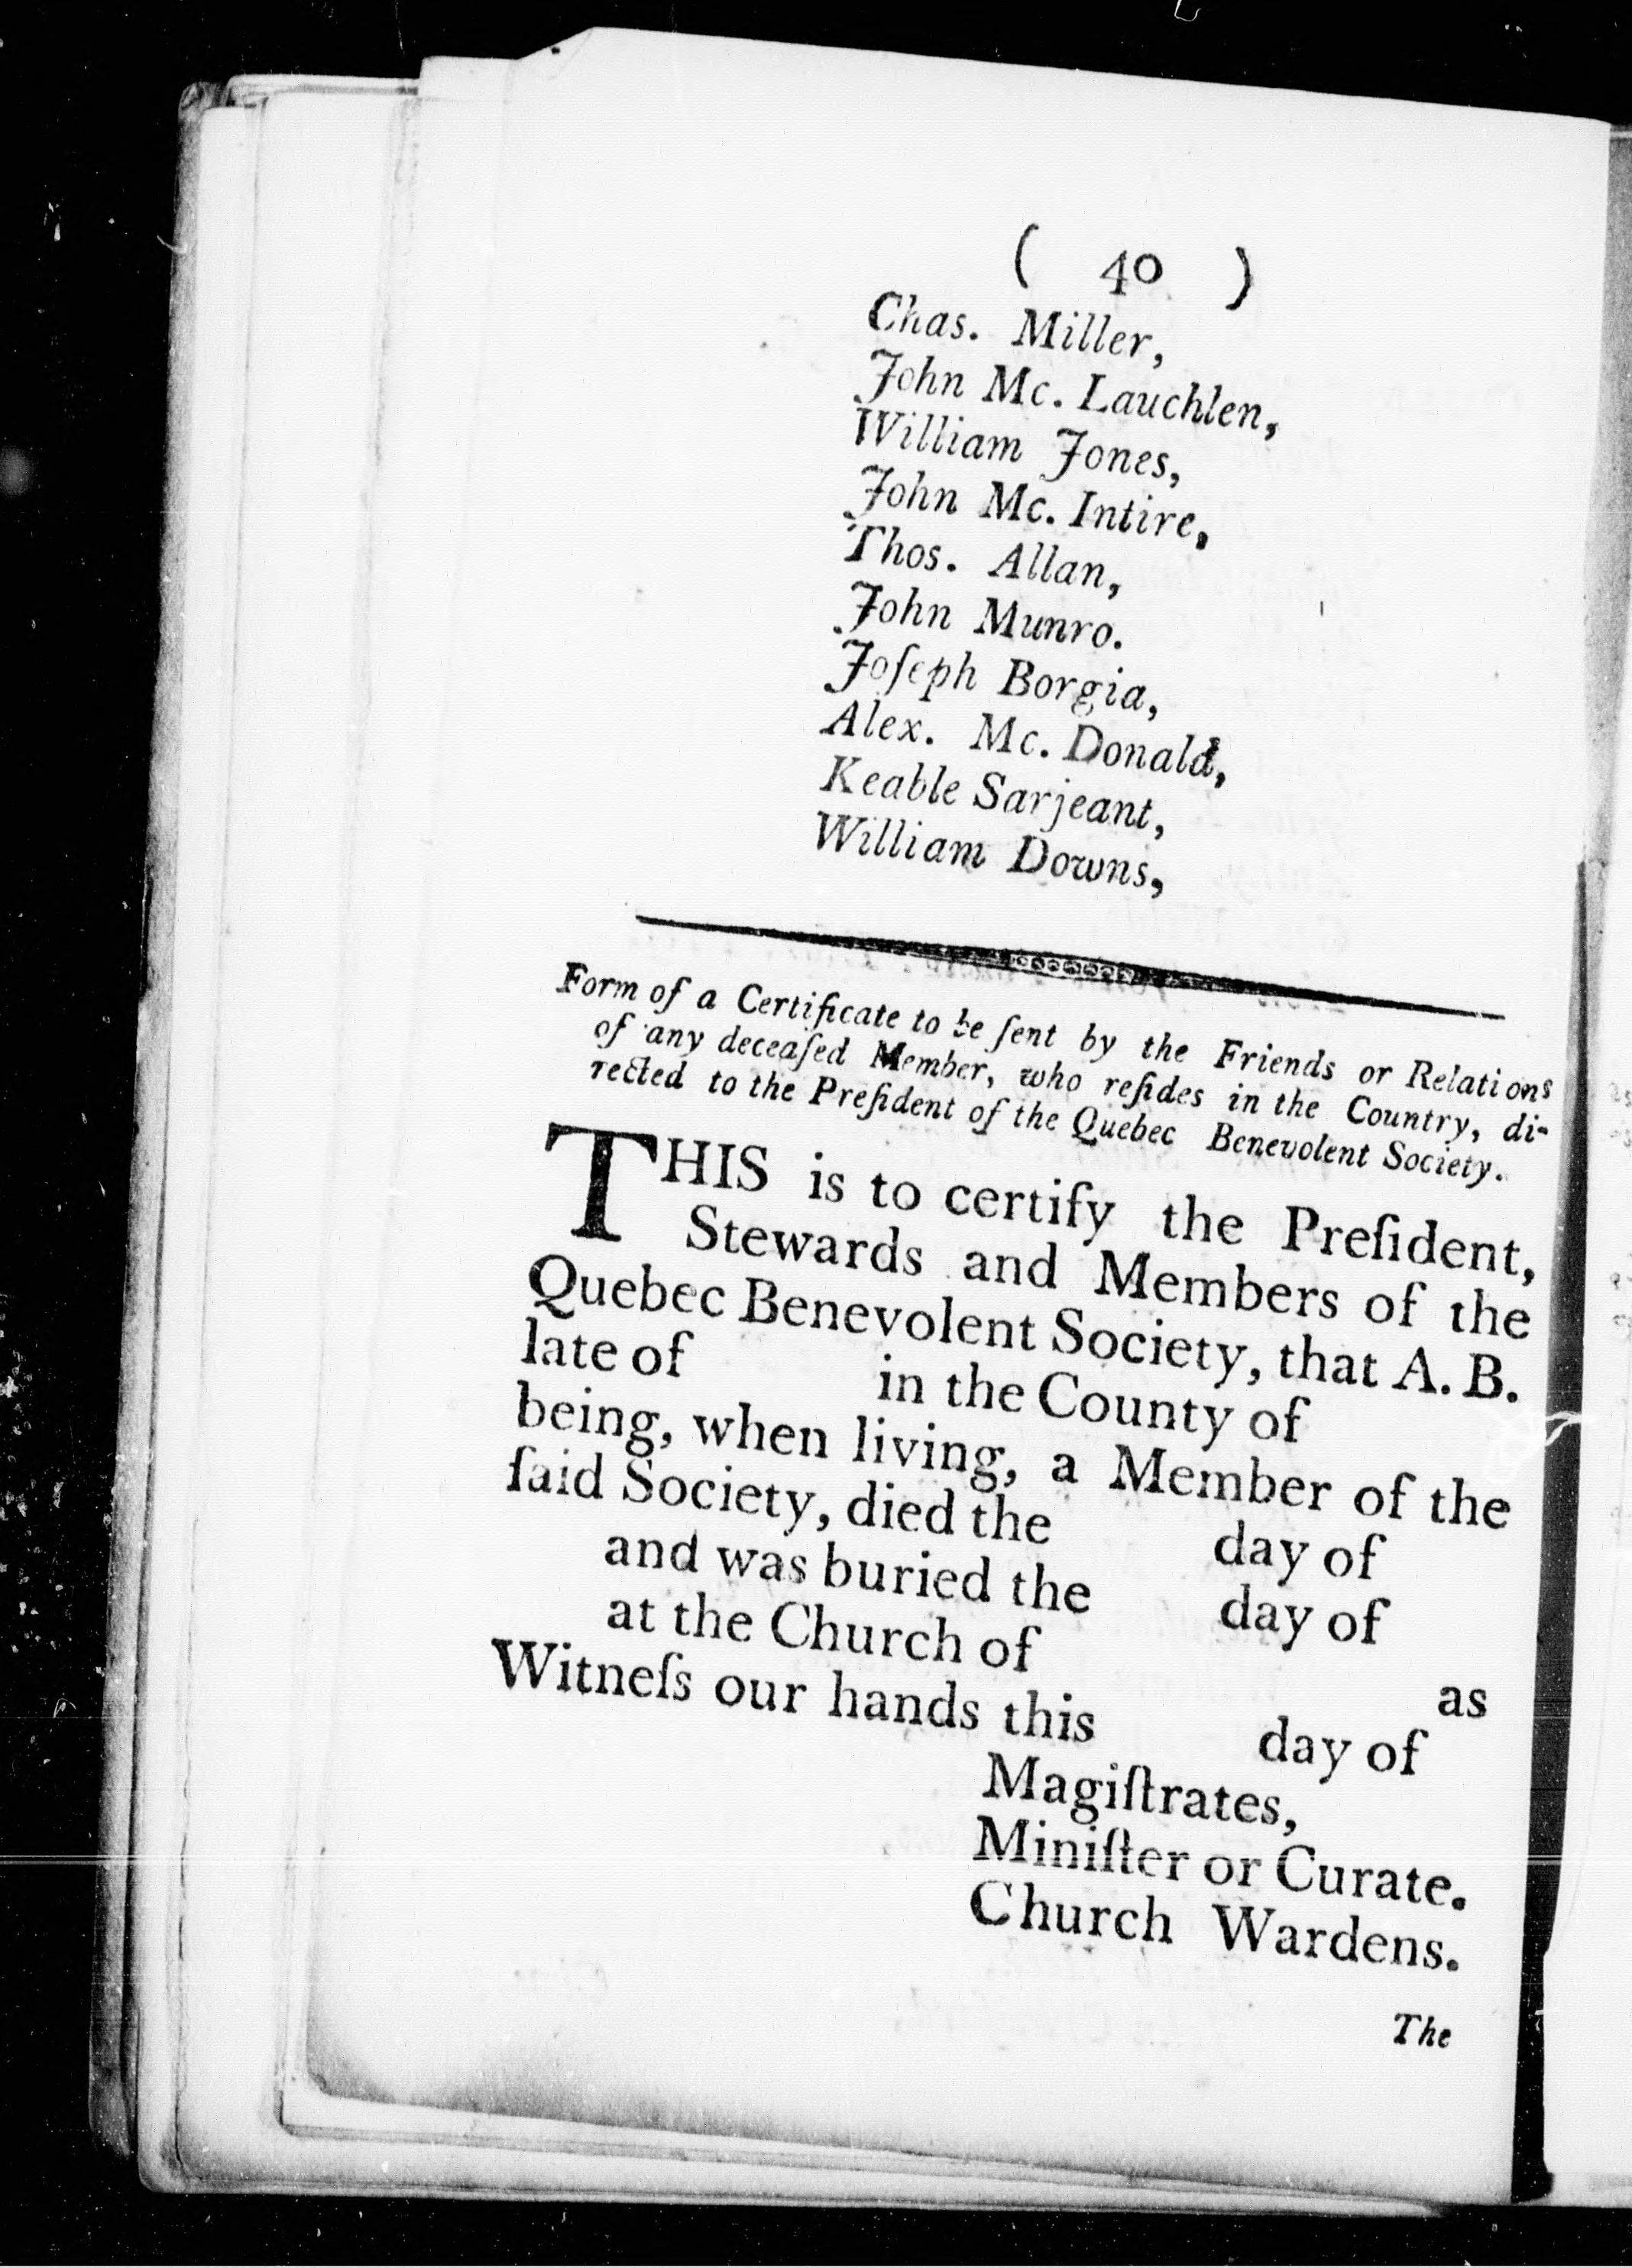 ( 40 )
Chas. Miller,
John Mc. Lauchlen,
William Jones,
John Mc. Intire,
Thos. Allan,
John Munro.
Joſeph Borgia,
Alex. Mc. Donald,
Keable Sarjeant,
William Downs,
Form of a Certificate to be ſent by the Friends or Relations
of any deceaſed Member, who reſides in the Country, di-
rected to the Preſident of the Quebec Benevolent Society.
THIS is to certify the Preſident,
Stewards and Members of the
Quebec Benevolent Society, that A. B.
late of in the County of
being, when living, a Member of the
ſaid Society, died the day of
and was buried the day of
at the Church of as
Witneſs our hands this day of
Magiſtrates,
Miniſter or Curate.
Church Wardens.
The